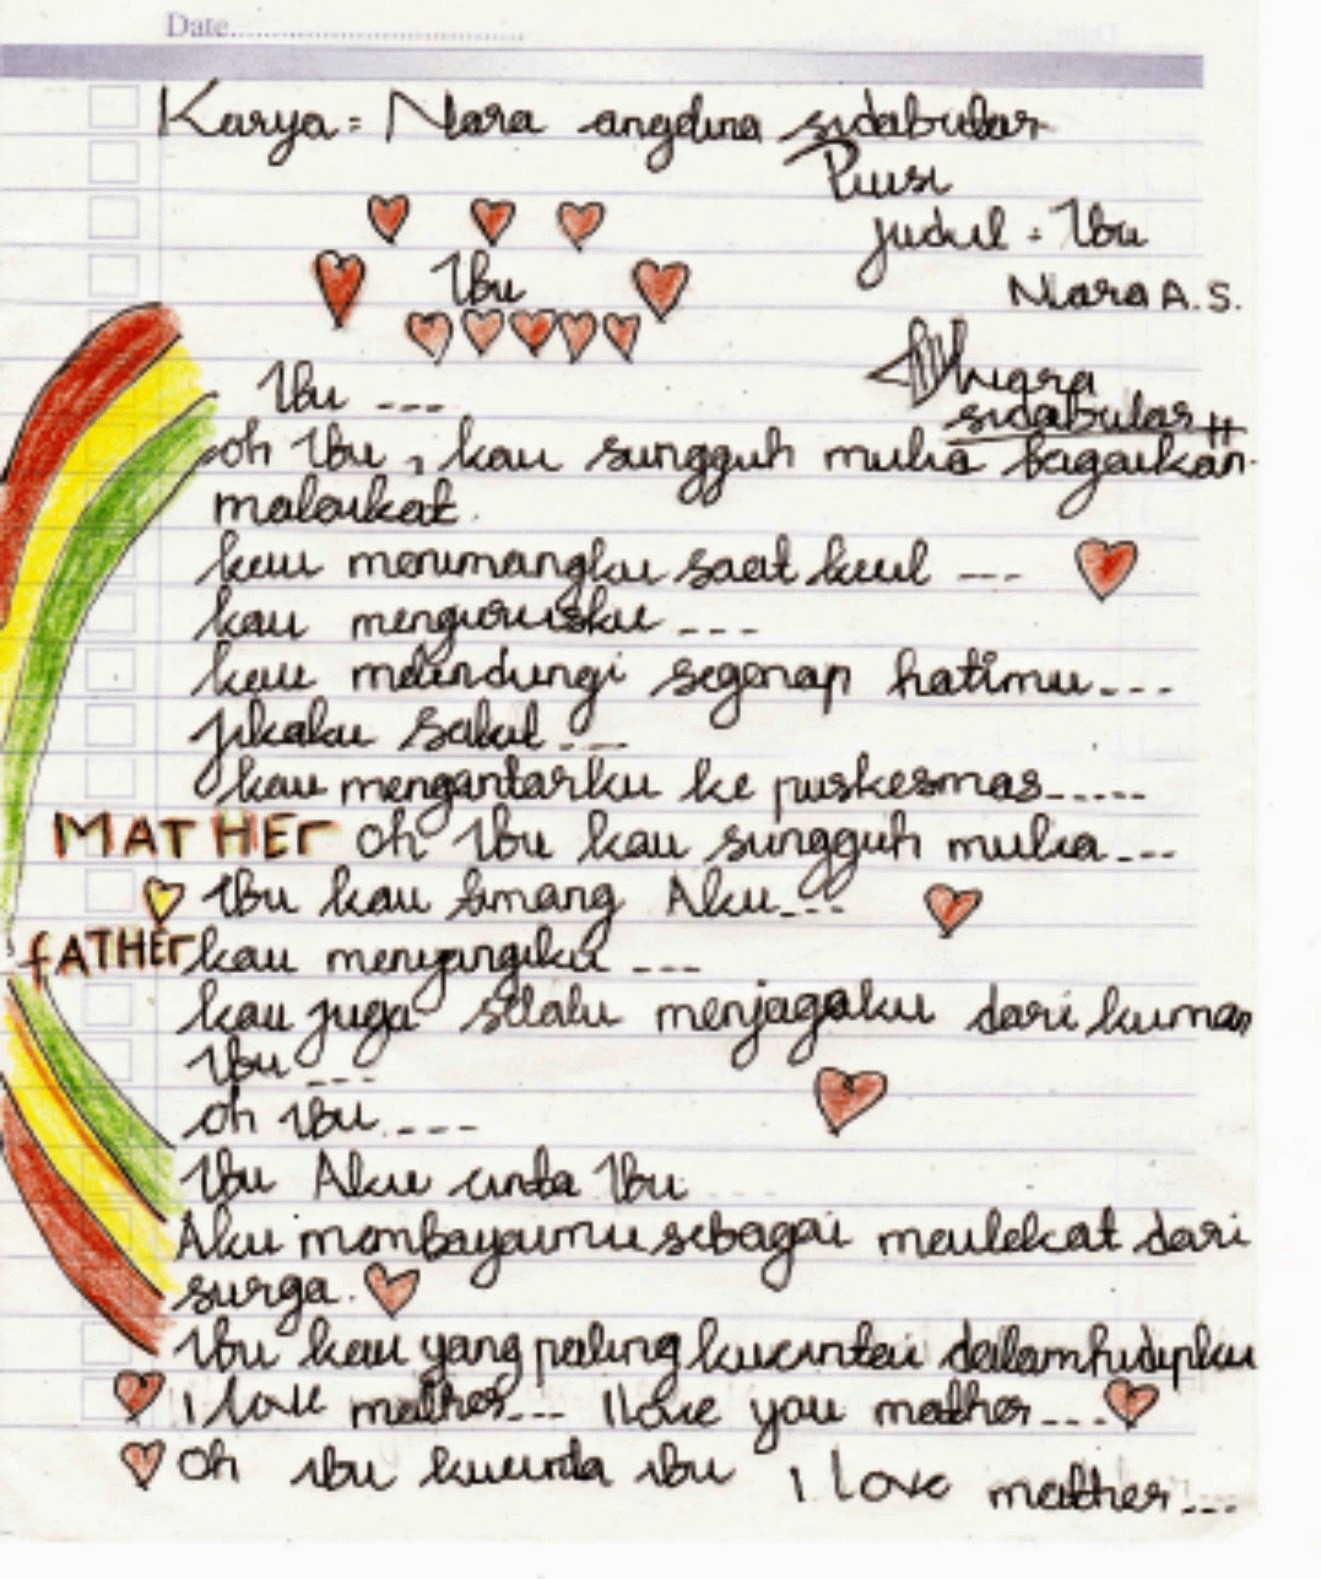 Date
Karya = Nara angelina sidabutar
Puisi
judul = Ibu
Ibu
Nara A. S.
Ibu ---
sidabutar
oh Ibu, kau sungguh mulia bagaikan
malaikat.
kau menimangku saat kecil ---
kau mengurusku ---
kau melindungi segenap hatimu ---
jikaku sakit ---
kau mengantarku ke puskesmas -----
MATHEr oh Ibu kau sungguh mulia ---
Ibu kau timang Aku ---
fATHEr kau menyangiku ---
kau juga selalu menjagaku dari kuman
Ibu ---
oh ibu ----
Ibu Aku cinta Ibu ---
Aku membayaimu sebagai meulekat dari
surga.
Ibu kau yang paling kucintai dalam hidupku
I love mather --- I love you mather ---
oh ibu kucinta ibu I love mather ---